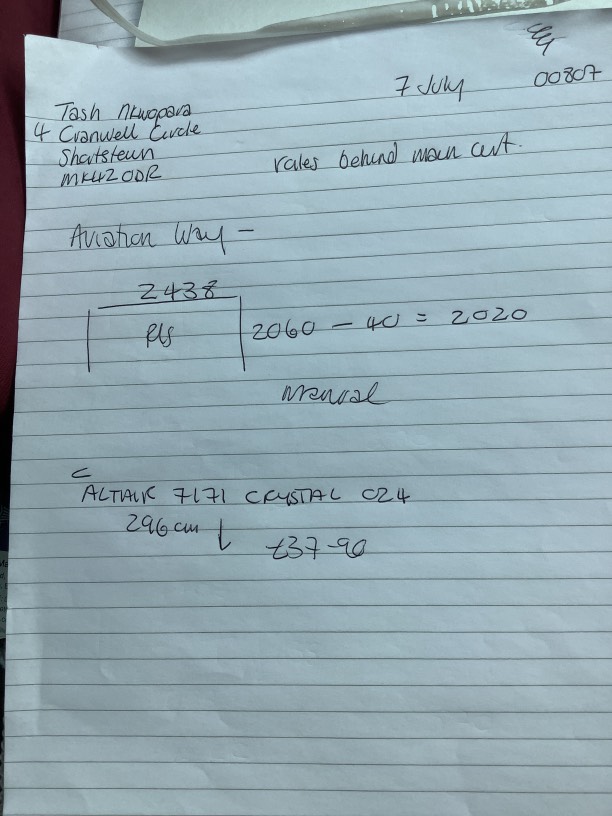 7 July 00807
Tash Nkwopara
4 Cranwell Circle
Shortsteun
MK42 0DR
rales behind main curt.
Aviation Way -
2438
2060 - 40 = 2020
Manual
C
ALTAIR 7171 CRYSTAL 024
296cm ↓
£37-90